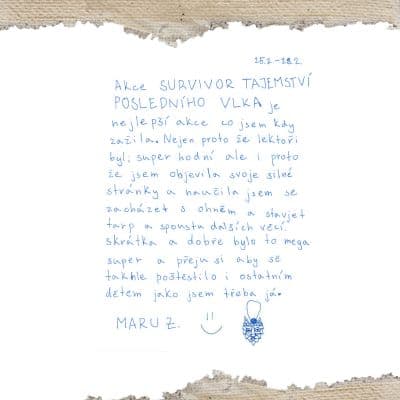 15.2-18.2.
Akce SURVIVOR TAJEMSTVÍ
POSLEDNÍHO VLKA je
nejlepší akce co jsem kdy
zažila. Nejen proto že lektoři
byli super hodní ale i proto
že jsem objevila svoje silné
stránky a naučila jsem se
zacházet s ohněm a stavjet
tarp a spoustu dalších věcí
skrátka a dobře bylo to mega
super a přeju si aby se
takhle poštěstilo i ostatním
dětem jako jsem třeba já.
MARU Z.